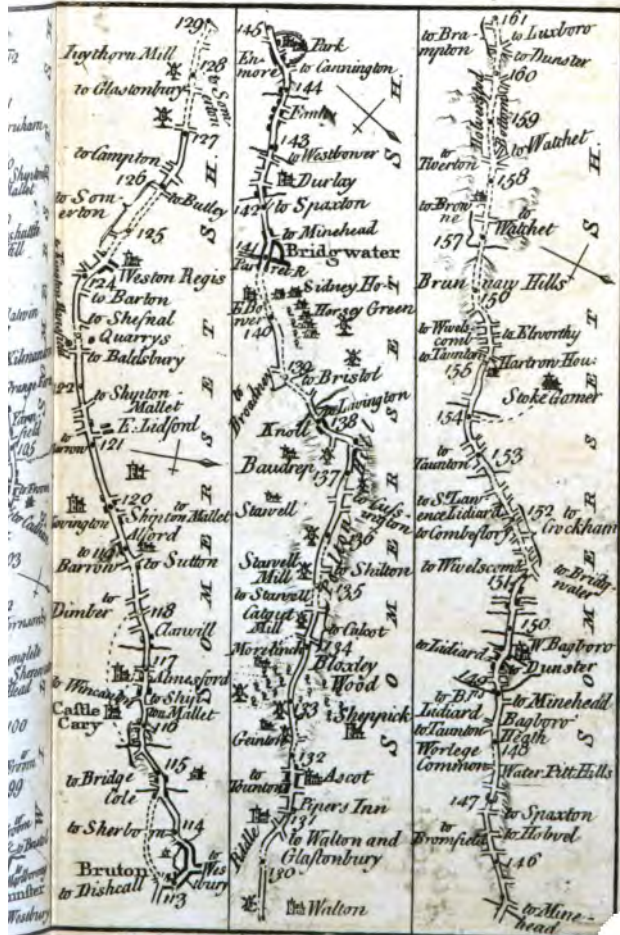 129
Ivythorn Mill
128
to Glastonbury
to Som-
erton
127
to Campton
126
to Som-
erton
to Butley
125
124
Weston Regis
to Barton
to Shefnal
Quarrys
to Baldsbury
122
to Shipton
Mallet
E. Lidford
to
Barrow
121
120
to
Shipton Mallet
Lovington
Alford
to
119
Barrow
to Sutton
to
Dimber
118
Clanvill
117
Ahnesford
to Wincanton
to Ship
ton Mallet
Castle
Cary
116
115
to Bridge
Cole
to Sherborn
114
Bruton
to
Wes
tbury
to Dishcall
113
SOMERSETSH.
145
Park
En-
more
to Cannington
144
143
to Westbower
Durlay
142
to Spaxton
to Minehead
141
Bridgwater
Parret R
Sidney Ho
E. Bower
Horsey Green
140
139
to
Broadnay
to Bristol
to Lavington
138
Knoll
Baudrep
137
Stawell
to Cuss-
ington
136
Polden Hill
Stawell
Mill
to Shilton
to Stawell
135
Catgut
Mill
to Calcot
134
Morelinch
Bloxley
Wood
133
Sheppick
Geinton
132
to
Taunton
Ascot
Pipers Inn
131
Riddle
to Walton and
Glastonbury
130
Walton
SOMERSETSH.
161
to Bra-
mpton
to Luxboro
to Dunster
160
159
to Watchet
to
Tiverton
158
to Brom
ne
to
Watchet
157
Brun nary Hills
156
to Wivels
comb
to Elworthy
to Taunton
Hartrow Hou:
155
Stoke Gomer
154
to
Taunton
153
to St. Law-
ence Lidiard
152
to
Crockham
to Combeflory
to Wivelscomb
151
to Bridg-
water
150
W. Bagboro
to Lidiard
to
Dunster
149
to Bps.
Lidiard
to Minehead
to Taunton
Bagboro
Heath
Worlege
Common
148
Water Pitt Hills
147
to Spaxton
to
Bromfield
to Hobvel
146
to Mine-
head
SOMERSETSH.